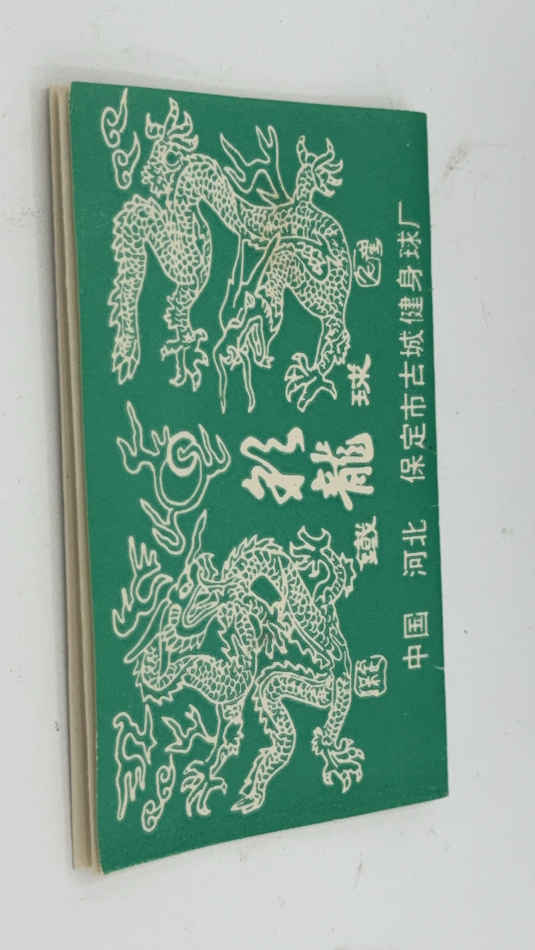 龍
球
中国 河北 保定市古城健身球厂